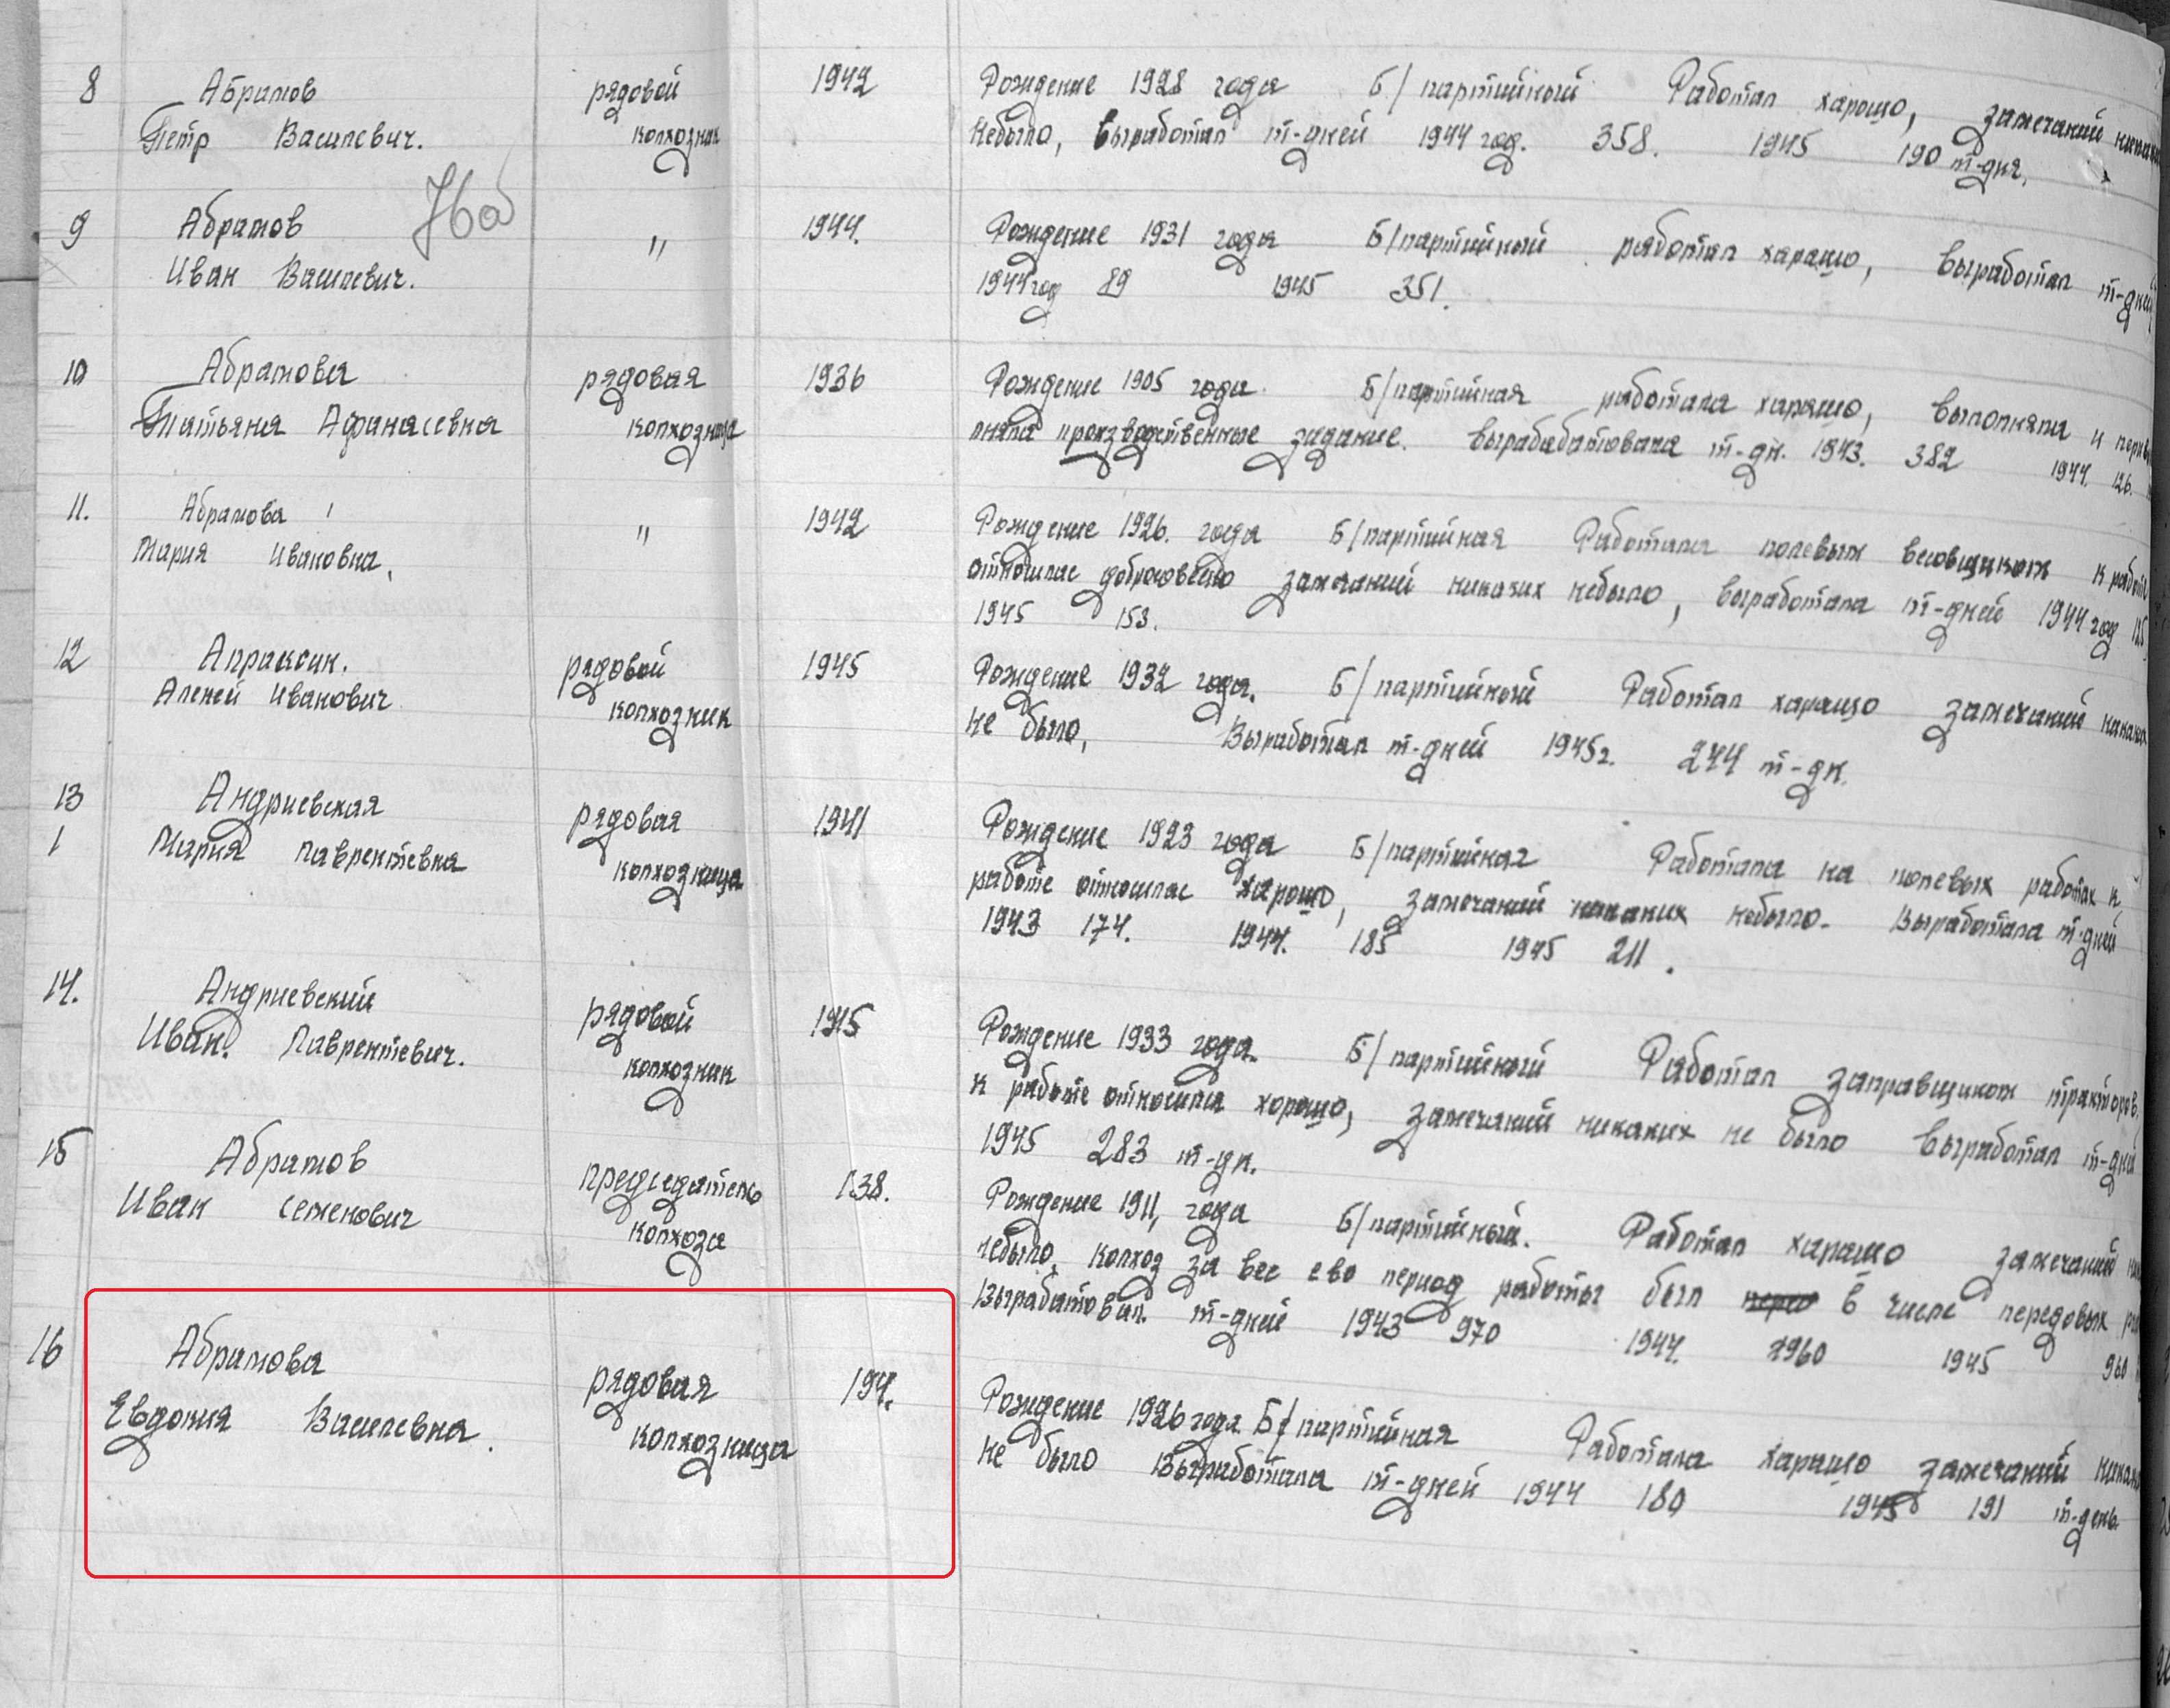 8 Абрамов рядовой 1942 Рождение 1928 года Б/партийный Работал харошо, замечаний
Петр Василевич. колхозник небыло, выработал т-дней 1944 год. 358. 1945 190 т-дня.
76об
9 Абрамов " 1944. Рождение 1931 года Б/партийный работал харашо, выработал т-дней
Иван Василевич. 1944 год 89 1945 351.
10 Абрамова рядовая 1936 Рождение 1905 года. Б/партийная работала харашо, выполняла и
Татьяна Афанасевна колхозница лняла производственные задание. вырабабатовала т-дн. 1943. 382 1944. 126.
11. Абрамова " 1942 Рождение 1926. года Б/партийная Работала полевым весовщиком к работе
Мария Ивановна. отношлас добросовесно замечаний никаких небыло, выработала т-дней 1944 год 125
1945 153.
12 Апраксин. рядовой 1945 Рождение 1932 года. Б/партийный Работал харашо замечаний
Алекей Иванович колхозник не было, Выработал т-дней 1945г. 244 т-дн.
13 Андриевская рядовая 1941 Рождение 1923 года Б/партийная Работала на полевых работах к
1 Мария Лаврентевна колхозница работе отношлас харошо, замечаний никаких небыло. Выработала т-дней
1943 174. 1944. 185 1945 211.
14. Андриевский рядовой 1945 Рождение 1933 года. Б/партийный Работал заправщиком тракторов.
Иван. Лаврентевич. колхозник к работе относился хорошо, замечаний никаких не было выработал т-дней
1945 283 т-дн.
15 Абрамов председатель 138. Рождение 1911, года Б/партийный. Работал харашо замечаний
Иван Семенович колхоза небыло, колхоз за вес ево период работы был перед в числе передовых
Вырабатовал. т-дней 1943 970 1944. 2960 1945 960
16 Абрамова рядовая 194. Рождение 1926 года Б/партийная Работала харашо замечаний никаких
Евдокия Василевна. колхозница не было Выработала т-дней 1944 180 1945 191 т-день